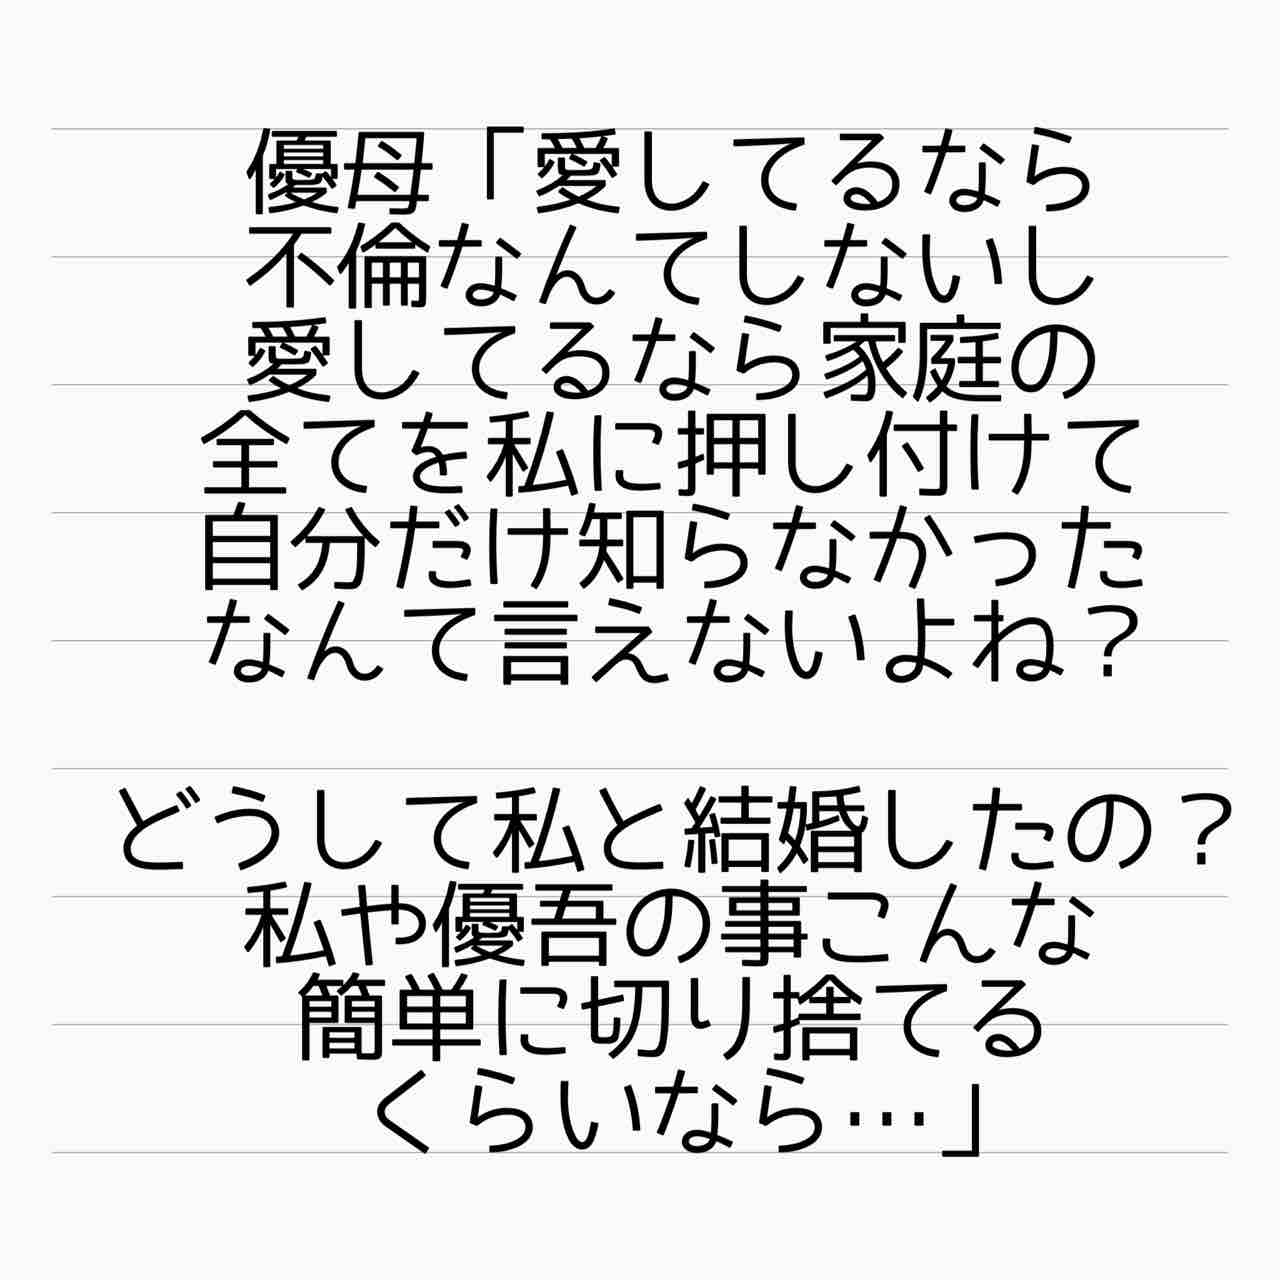 優母「愛してるなら
不倫なんてしないし
愛してるなら家庭の
全てを私に押し付けて
自分だけ知らなかった
なんて言えないよね？
どうして私と結婚したの？
私や優吾の事こんな
簡単に切り捨てる
くらいなら…」